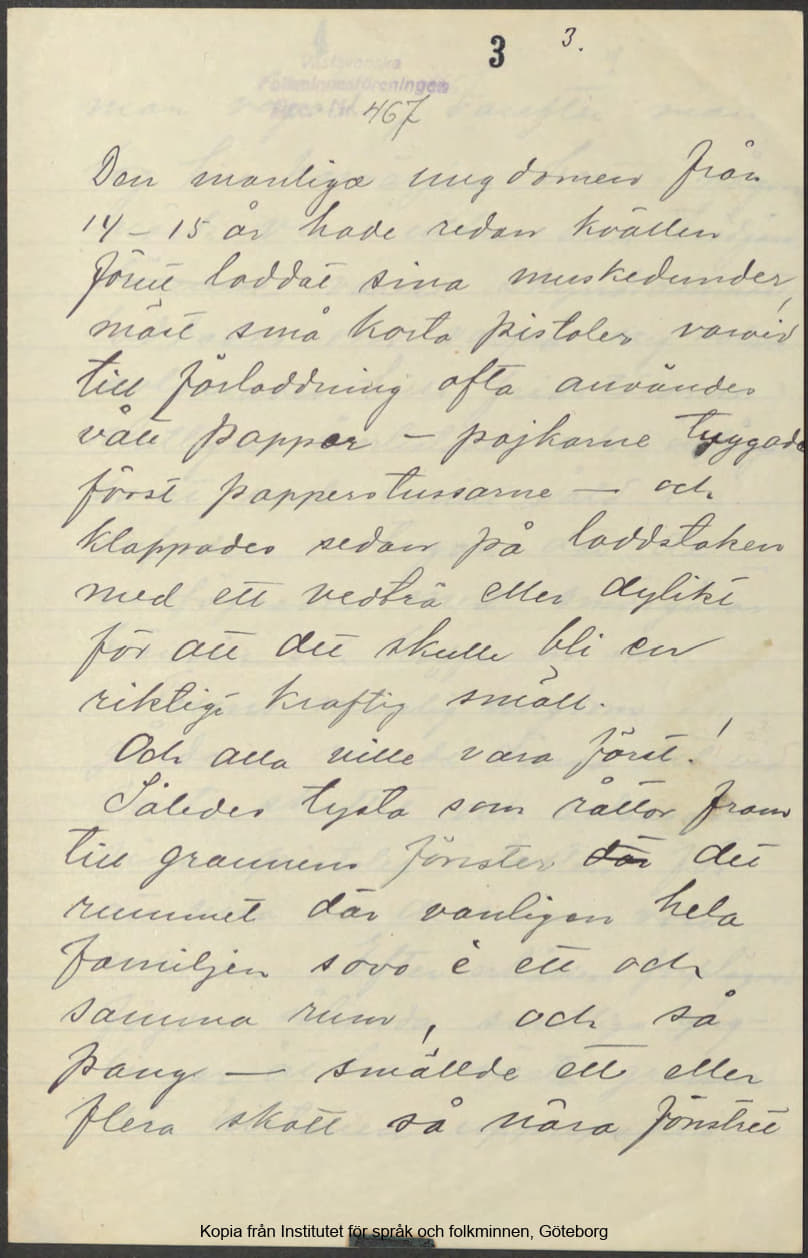 3 3.
Västsvenska
Folkminnesföreningen
Acc. Nr. 467
Den manliga ungdomen från
14 – 15 år hade redan kvällen
förut laddat sina muskedunder,
mäst små korta pistoler varvid
till förladdning ofta användes
vått papper – pojkarne tuggade
först papperstussarne — och
klappades sedan på laddstaken
med ett vedträ eller dylikt
för att det skulle bli en
riktigt kraftig smäll.
Och alla ville vara först!
Således tysta som råttor fram
till grannens fönster där det
rummet där vanligen hela
familjen sovo i ett och
samma rum, och så
pang — smällde ett eller
flera skott så nära fönstret
Kopia från Institutet för språk och folkminnen, Göteborg